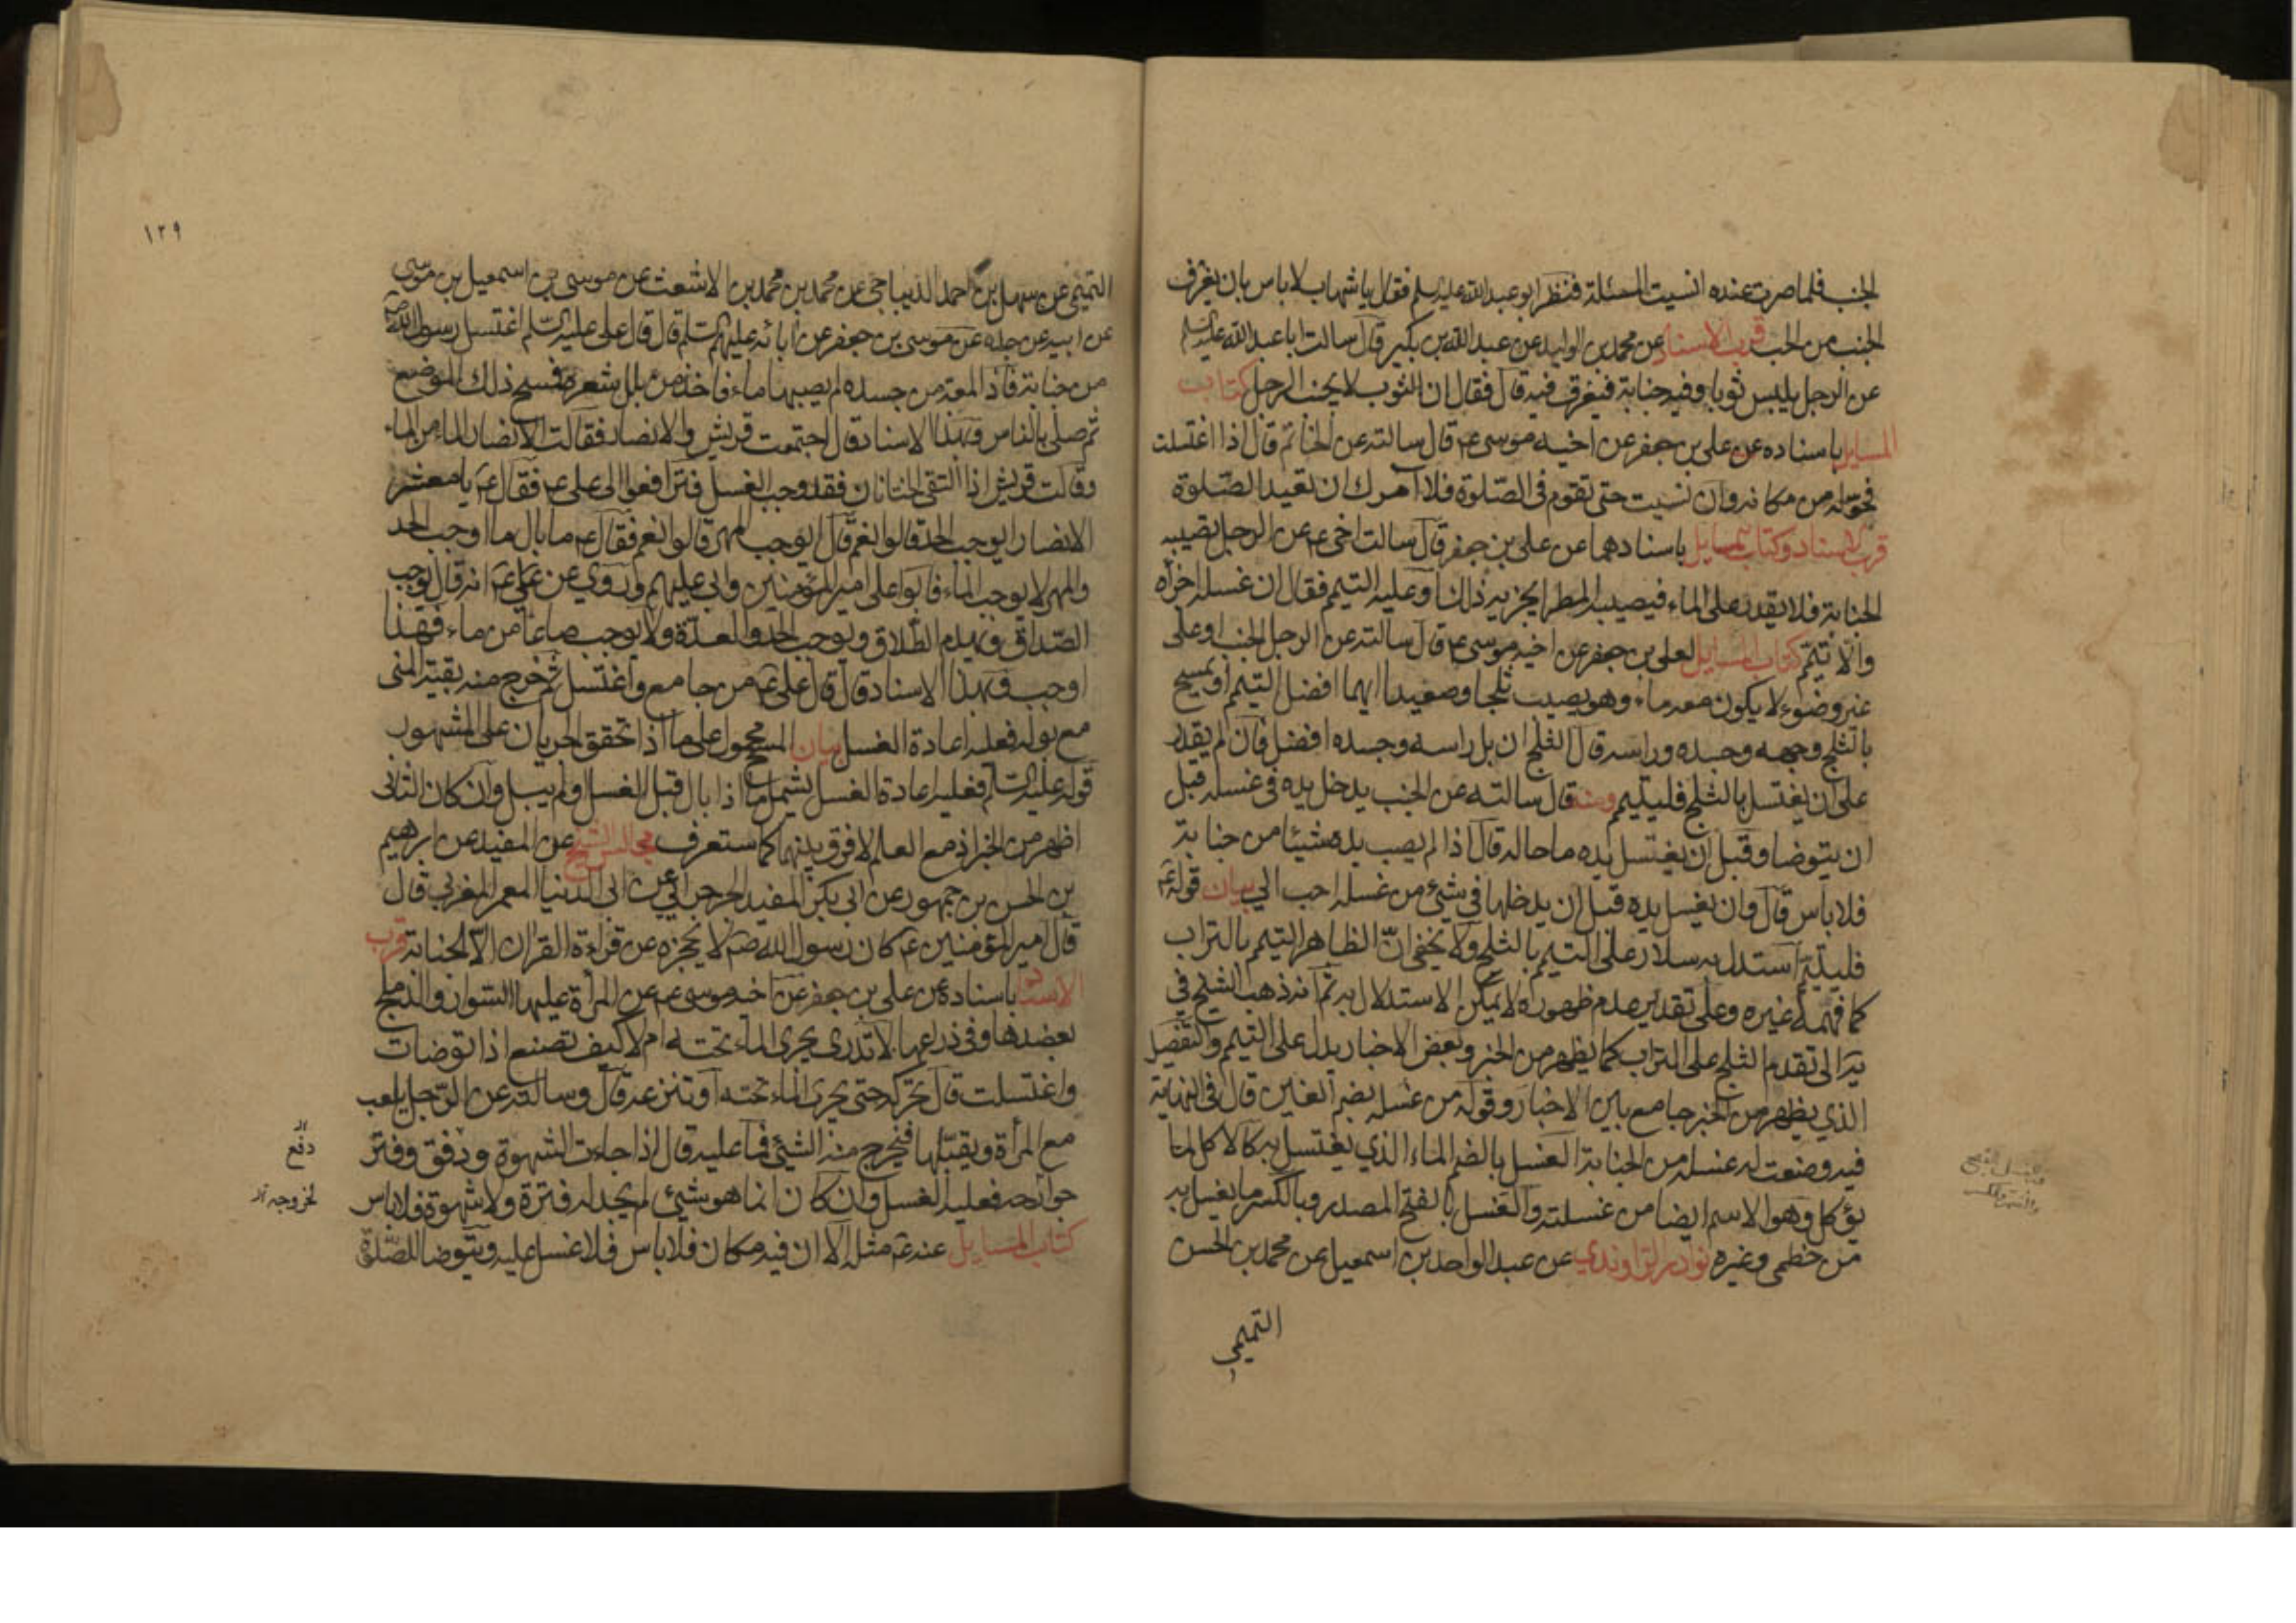 الجنب فلما صرت عنده انسيت المسئلة فنظر ابو عبد الله عليه السلم فقال يا شهاب لا باس بان يغرف
الجنب من الحب قرب الاسناد عن محمد بن الوليد عن عبد الله بن بكير قال سالت ابا عبد الله عليه السلم
عن الرجل يلبس ثوبا وفيه جنابة فيغرق فيه قال فقال ان الثوب لا يجنب الرجل كتاب
المسايل باسناده عن علي بن جعفر عن اخيه موسى ع قال سالته عن الخاتم قال اذا اغتسلت
فحوله من مكانه وان نسيت حتى تقوم في الصلوة فلا آمرك ان تعيد الصلوة
قرب الاسناد وكتاب المسايل باسنادهما عن علي بن جعفر قال سالت اخي ع عن الرجل تصيبه
الجنابة فلا يقدر على الماء فيصيبه المطر ايجزيه ذلك او عليه التيمم فقال ان غسله اجزأه
والا تيمم كتاب المسايل لعلي بن جعفر عن اخيه موسى ع قال سالته عن الرجل الجنب او على
غير وضوء لا يكون معه ماء وهو يصيب ثلجا وصعيدا ايهما افضل التيمم او يمسح
بالثلج وجهه وجسده وراسه قال الثلج ان بل راسه وجسده افضل فان لم يقدر
على ان يغتسل بالثلج فليتيمم ومنه قال سالته عن الجنب يدخل يده في غسله قبل
ان يتوضا وقبل ان يغتسل يده ما حاله قال اذا لم يصب يده شيئا من جنابة
فلا باس قال وان يغسل يده قبل ان يدخلها في شئ من غسله احب الي بيان قوله ع
فليتيمم استدل به سلار على التيمم بالثلج ولا يخفى ان الظاهر التيمم بالتراب
كما فهمه غيره وعلى تقدير عدم ظهوره لا يمكن الاستدلال به ثم انه ذهب الشيخ في
يه الى تقدم الثلج على التراب كما يظهر من الخبر وبعض الاخبار يدل على التيمم والتفصيل
الذي يظهر من الخبر جامع بين الاخبار وقوله من غسله بضم الغين قال في النهاية
فيه وضعت له غسله من الجنابة الغسل بالضم الماء الذي يغتسل به كالاكل لما
يؤكل وهو الاسم ايضا من غسلته والغسل بالفتح المصدر وبالكسر ما يغسل به
من خطمي وغيره نوادر الراوندي عن عبد الواحد بن اسمعيل عن محمد بن الحسن
التميمي
١٢٩
التميمي عن سهل بن احمد الديباجي عن محمد بن محمد بن الاشعث عن موسى بن اسمعيل بن موسى
عن ابيه عن جده عن موسى بن جعفر عن ابائه عليهم السلم قال قال علي عليه السلم اغتسل رسول الله ص
من جنابة فاذا لمعة من جسده لم يصبها ماء فاخذ من بلل شعره فمسح ذلك الموضع
ثم صلى بالناس وبهذا الاسناد قال اجتمعت قريش والانصار فقالت الانصار الماء من الماء
وقالت قريش اذا التقى الختانان فقد وجب الغسل فترافعوا الى علي ع فقال ع يا معشر
الانصار ايوجب الحد قالوا نعم قال ايوجب المهر قالوا نعم فقال ع ما بال ما اوجب الحد
والمهر لا يوجب الماء فابوا على امير المؤمنين وابى عليهم وروي عن علي ع انه قال يوجب
الصداق ويهدم الطلاق ويوجب الحد والعدة ولا يوجب صاعا من ماء فهذا
اوجب وبهذا الاسناد قال قال علي ع من جامع واغتسل ثم خرج منه بقية المني
مع بوله فعليه اعادة الغسل بيان المسح محمول على ما اذا تحقق الجريان على المشهور
قوله عليه السلم فعليه اعادة الغسل يشمل ما اذا بال قبل الغسل ولم يبل وان كان الثاني
اظهر من الخبر اذ مع العلم لا فرق بينهما كما ستعرف مجالس الشيخ عن المفيد عن ابرهيم
بن الحسن بن جمهور عن ابي بكر المفيد الجرجرائي عن ابي الدنيا المعمر المغربي قال
قال امير المؤمنين ع كان رسول الله ص لا يحجزه عن قراءة القران الا الجنابة قرب
الاسناد باسناده عن علي بن جعفر عن اخيه موسى ع عن المراة عليها السوار والدملج
بعضدها وفي ذراعها لا تدري يجري الماء تحته ام لا كيف تصنع اذا توضات
واغتسلت قال تحركه حتى يجري الماء تحته او تنزعه قال وسالته عن الرجل يلعب
مع المرأة ويقبلها فيخرج منه الشئ فما عليه قال اذا جاءت الشهوة ودفق وفتر
جوارحه فعليه الغسل وان كان انما هو شئ لم يجد له فترة ولا شهوة فلا باس
كتاب المسايل عنه ع مثله الا ان فيه مكان فلا باس فلا غسل عليه ويتوضا للصلوة
دفع
لخروجه